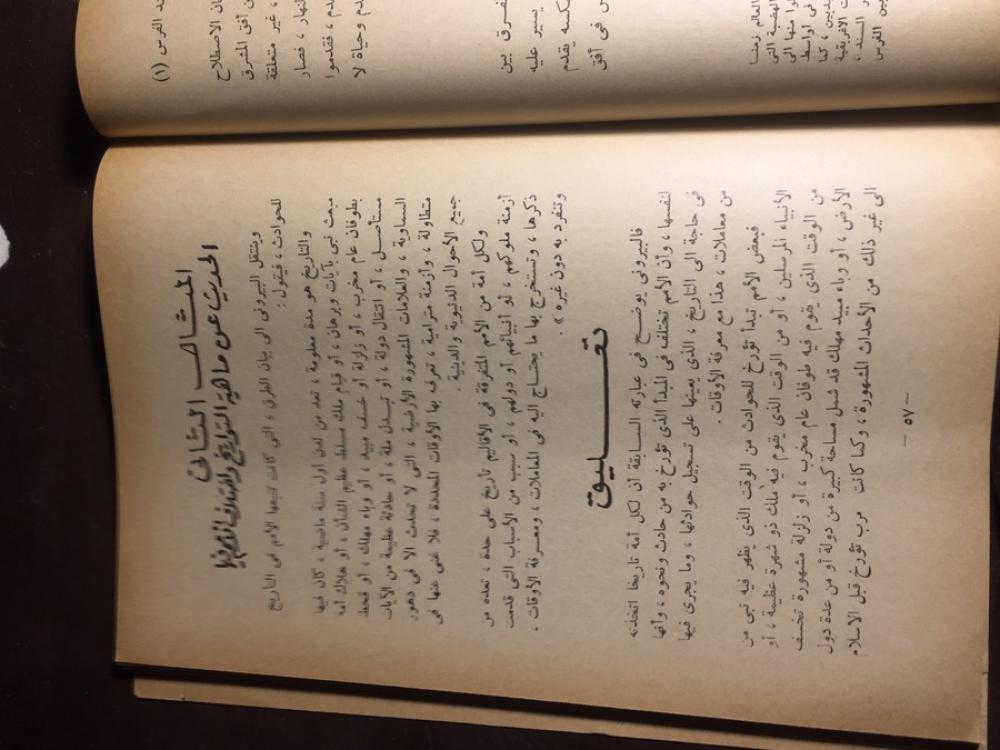 المثال الثانى
الحديث عن ماهية التواريخ واختلاف الأمم فيها
وينتقل البيرونى الى بيان الطرق ، التى كانت تتبعها الأمم فى التاريخ
للحوادث ، فيقول :
والتاريخ هو مدة معلومة ، تعد من لدن أول سنة ماضية ، كان فيها
مبعث نبى بآيات وبرهان ، أو قيام ملك مسلط عظيم الشان ، أو هلاك أمة
بطوفان عام مخرب ، أو زلزلة أو خسف مبيد ، أو وباء مهلك ، أو قحط
مستأصل ، أو انتقال دولة ، أو تبدل ملة ، أو حادثة عظيمة من الآيات
السماوية ، والعلامات المشهورة الأرضية ، التى لا تحدث الا فى دهور
متطاولة ، وأزمنة متراخية ، تعرف بها الأوقات المحددة ، فلا غنى عنها فى
جميع الأحوال الدنيوية والدينية
ولكل أمة من الأمم المتفرقة فى الأقاليم تاريخ على حدة ، تعده من
أزمنة ملوكهم ، أو أنبيائهم أو دولهم ، أو سبب من الأسباب التى قدمت
ذكرها ، وتستخرج بها ما يحتاج اليه فى المعاملات ، ومعرفة الأوقات ،
وتنفرد به دون غيره » .
تعـــليق
فالبيرونى يوضح فى عبارته السابقة أن لكل أمة تاريخا اتخذته
لنفسها ، وأن الأمم تختلف فى المبدأ الذى تؤرخ به من حادث ونحوه ، وأنها
فى حاجة الى التاريخ ، الذى يعينها على تسجيل حوادثها ، وما يجرى فيها
من معاملات ، هذا مع معرفة الأوقات .
فبعض الأمم تبدأ تؤرخ للحوادث من الوقت الذى يظهر فيه نبى من
الأنبياء المرسلين ، أو من الوقت الذى يقوم فيه ملك ذو شهرة عظيمة ، أو
من الوقت الذى يقوم فيه طوفان عام مخرب ، أو زلزلة مشهورة تخسف
الأرض ، أو وباء مبيد مهلك قد شمل مساحة كبيرة من دولة أو من عدة دول
الى غير ذلك من الأحداث المشهورة ، وكما كانت العرب تؤرخ قبل الاسلام
— ٥٧ —